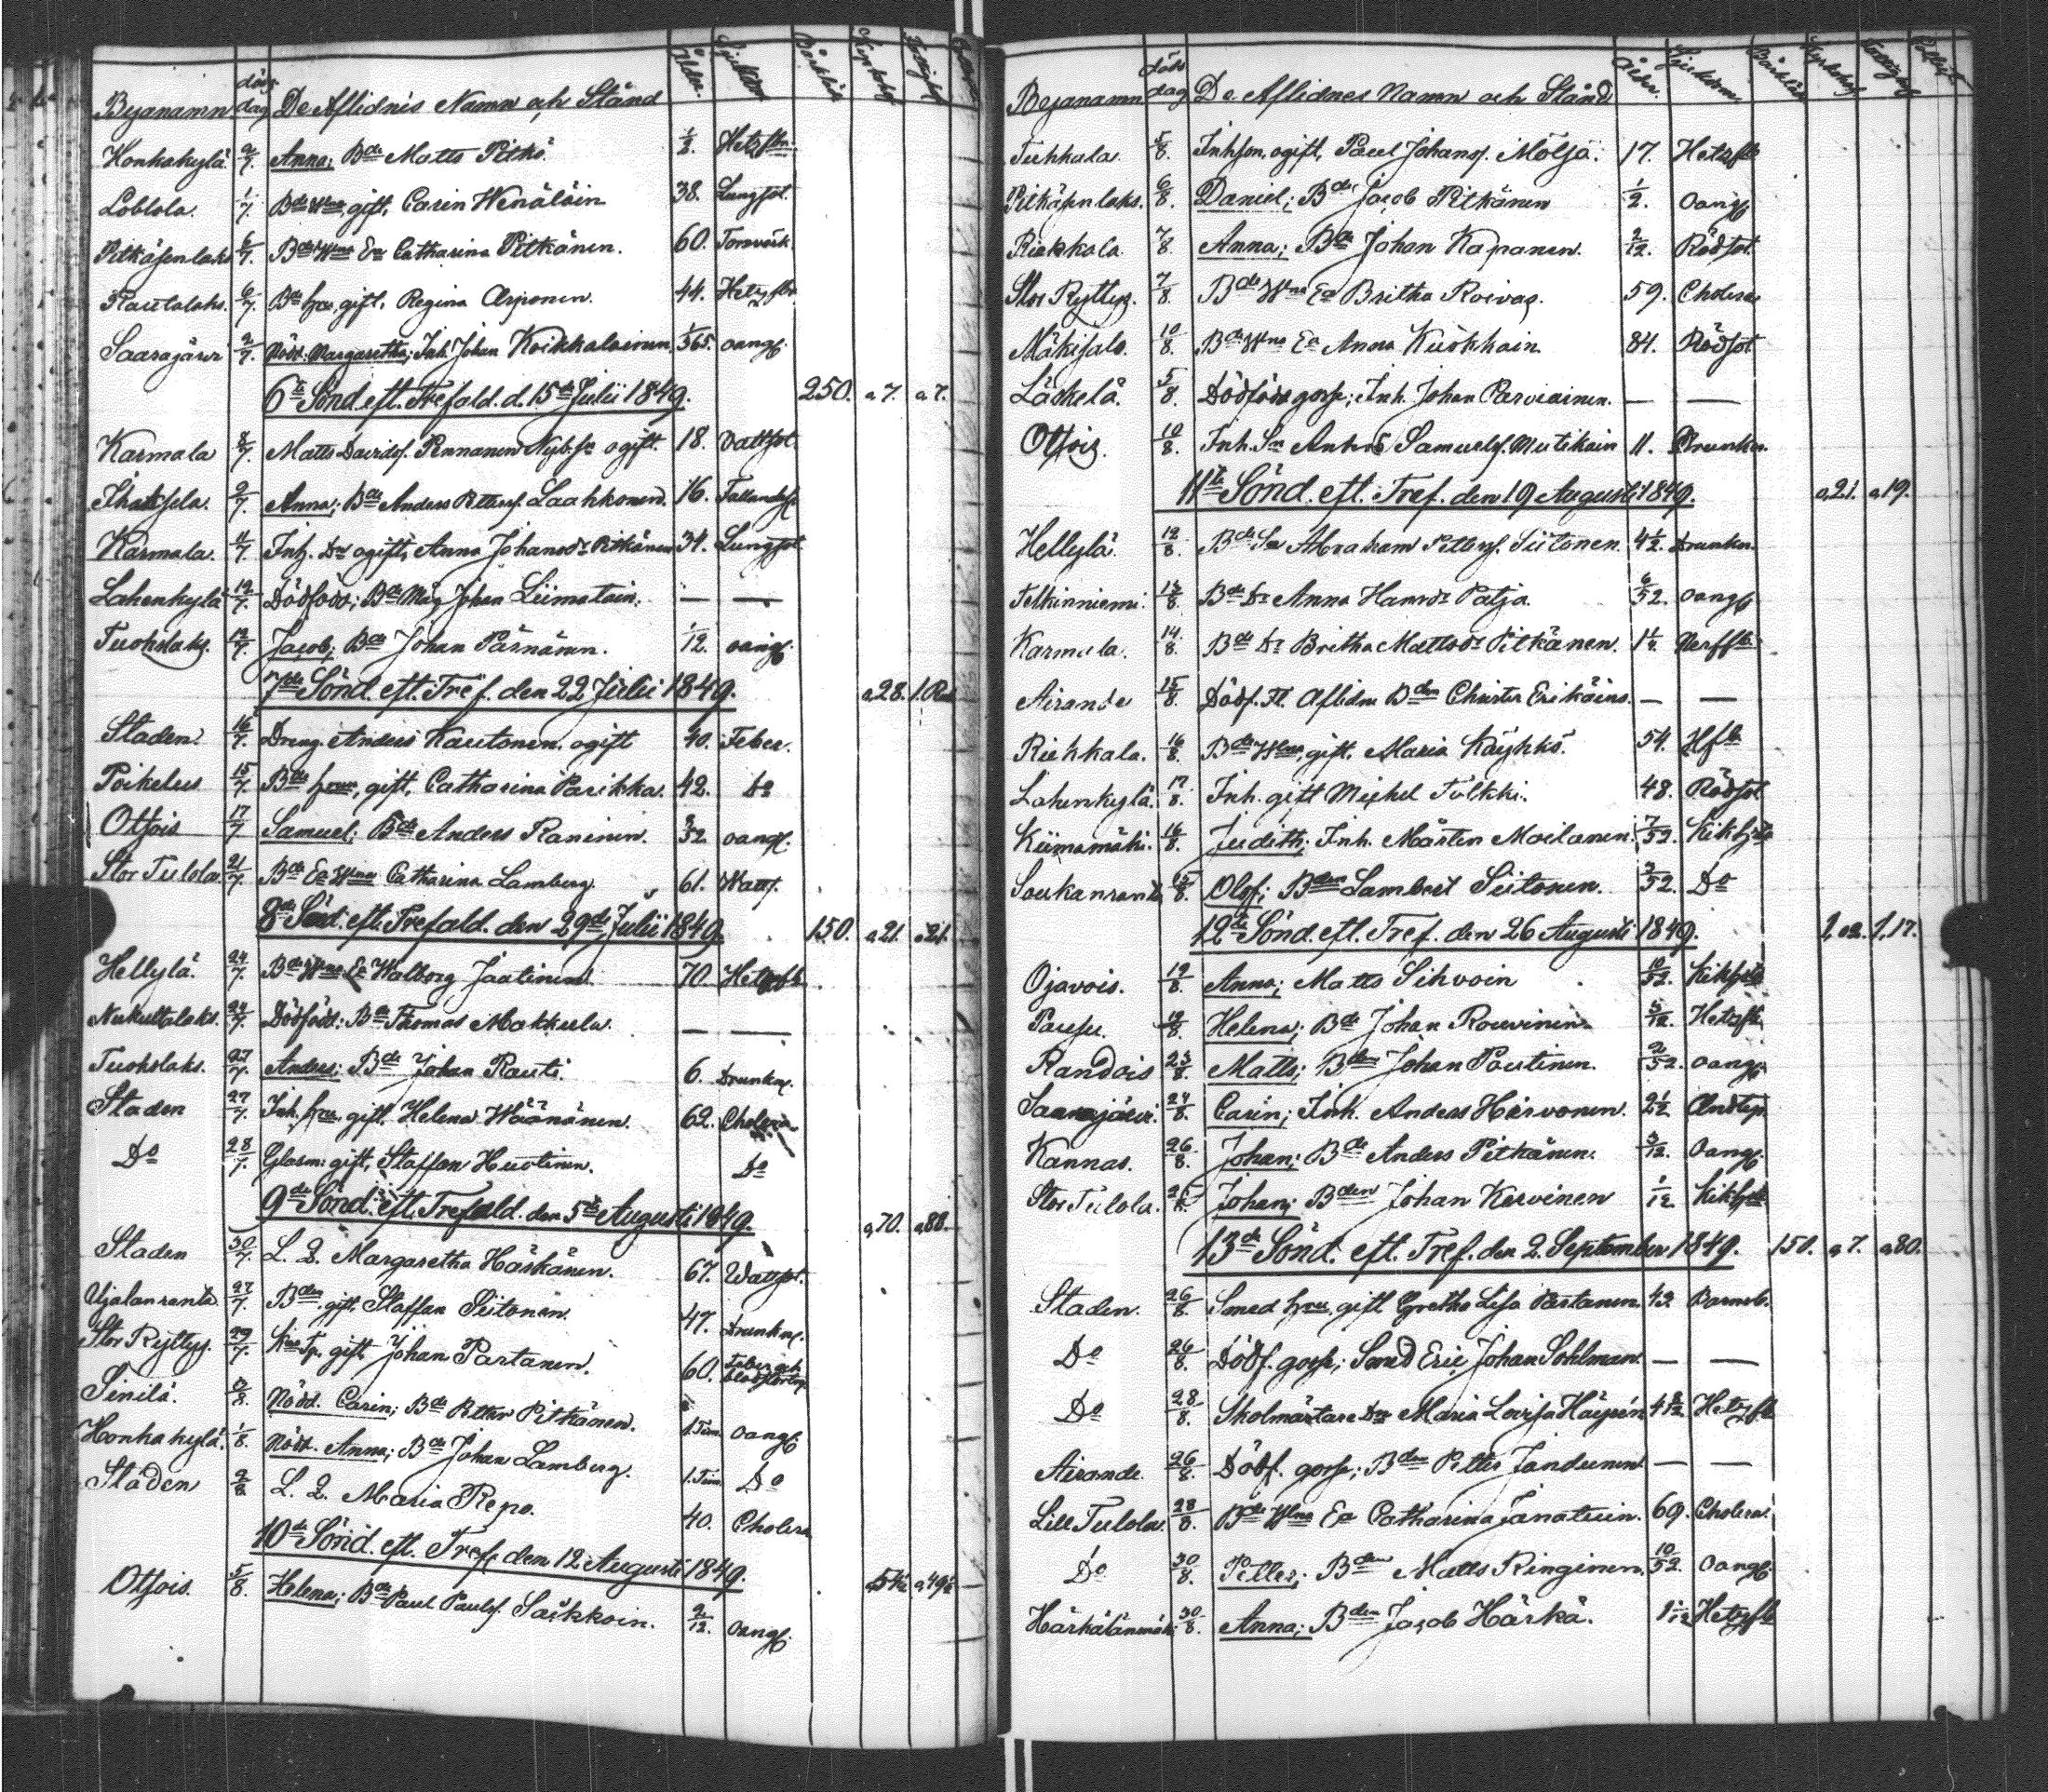 Byanamn döds dag De Aflidnes Namn och Stånd Ålder Sjukdom
Honkakylä 2/7. Anna; Bde Matts Pitkä. 1/2. Hetzfbr.
7. Bde Hna gift, Carin Wenäläin 38. Lungsot.
Pitkäsenlaks 6/7. Bde Hna Ea Catharina Pitkänen. 60. Torrvärk
Rautalaks. 6/7. Bde hru gift. Regina Arponen. 44. Hetzfbr
Saarajärvi 2/7. Nöd. Margaretha; Inh. Johan Koikkalainen. 1/365. oangf.
6te Sönd. eft. Trefald. d. 15de Julii 1849. 250. a 7. a 7.
Karmala 8/7. Matts Davidsf. Pennanen Nyb. Sn ogift. 18. Vattsot
9/7. Anna; Bde Anders Pettersf. Laahkonen. 16. Fallandes.
Karmala. 11/7. Inh. Dr ogift, Anna Johansdr Pitkänen 34. Lungsot
Lahenkylä 12/7. Dödföds; Bde Måg Johan Liimatain. — —
Tuokslaks. 12/7. Jacob; Bde Johan Pärnänen. 1/12. oangf.
7de Sönd. eft. Tref. den 22 Julii 1849. a 28. 1. Rub
Staden. 16/7. Dreng. Anders Kautonen. ogift 40. Feber.
Poikelus 15/7. Bde hru, gift, Catharina Parikka. 42. Do
Otsois 17/7 Samuel; Bde Anders Raninen. 3/52. oangf.
Stor Tulola 21/7. Bde Ea Hna Catharina Lamberg. 61. Watts.
8de Sönd. eft. Trefald. den 29de Julii 1849. 150. a 21. a 21.
Hellylä. 24/7. Bde Hna Ea Walborg Jaatinen. 70. Hetzfb.
Nukuttalaks. 24/7. Dödföds; Bde Thomas Mokkula. — —
Tuokslaks. 27/7. Anders; Bde Johan Rauti. 6. Drunkn.
Staden 27/7. Inh. hru. gift. Helena Wäänänen. 62. Cholera
Do 28/7. Glasm: gift, Staffan Huotinen. Do
9de Sönd. eft. Trefald. den 5te Augusti 1849. a 70. a 88.
Staden 30/7. L. Q. Margaretha Häskänen. 67. Wattsot.
Ujalanranta 27/7. Bden. gift. Staffan Siitonen. 47. Drunkn.
Stor Ryttys. 29/7. gift, Johan Partanen. 60. Feber och
Sinilä. 8. Nödd. Carin; Bde Petter Pitkänen. 1. Tim. oangf.
Honkakylä. 1/8. Nödd. Anna; Bde Johan Lamberg. 1. Tim Do
Staden 2/8 L. Q. Maria Repo. 40. Cholera
10de Sönd. eft. Tref. den 12 Augusti 1849. a 54½ a 49½
Otsois. 5/8. Helena; Bde Paul Paulsf. Säkkoin. 2/12. oangf.
Byanamn döds dag De Aflidnes Namn och Stånd Ålder. Sjukdom
Tuhkala. 5/8. Inhson. ogift, Paul Johansf. Möljä. 17. Hetzfb
Pitkäsenlaks. 6/8. Daniel; Bde Jacob Pitkänen 1/2. oangf.
Riekkala. 7/8. Anna; Bde Johan Kapanen. 2/12. Rödsot.
Stor Ryttys. 7/8. Bde Hna Ea Britha Roivas. 59. Cholera
Mäkisalo. 10/8. Bde Hna Ea Anna Kuokkain. 84. Rödsot
Läskelä. 5/8. Dödföds gosse; Inh. Johan Parviainen. — —
Otsois. 10/8. Inh. Sn Anders Samuelsf. Mutikain 11. Drunkn.
11te Sönd. eft. Tref. den 19 Augusti 1849. a 21. a 19.
Hellylä. 12/8. Bde Sn Abraham Pettersf. Siitonen. 4½. Drunkn.
Telkinniemi. 13/8. Bde Dr Anna Hansdr Patja. 6/52. oangf
Karmala. 14/8. Bde Dr Britha Mattsdr Pitkänen. Nerffb.
Airande 15/8. Dödf. Fl. Aflidne Bden Christer Erikäins. — —
Riekkala. 16/8. Bde Hna, gift, Maria Käyhkö. 54. Hfb
Lahenkylä. 17/8. Inh. gift Michel Tulkki. 48. Rödsot
Kiimamäki. 16/8. Judith; Inh. Mårten Moilanen. 7/52. Kikhosta
Soukanranta 15/8. Olof; Bden Lambert Siitonen. 3/52. Do
12te Sönd. eft. Tref. den 26 Augusti 1849. 1,02. 1,17.
Ojavois. 19/8. Anna; Matts Sihvoin 10/52. Kikhosta
Pausu. 19/8. Helena; Bde Johan Rouvinen. 5/12. Hetzfb.
Randois 23/8. Matts; Bden Johan Poutinen. 2/52. oangf.
Saarajärvi. 24/8. Carin; Inh. Anders Hirvonen. 2½ Andtep.
Kannas. 26/8. Johan; Bde Anders Pitkänen. 3/12. oangf.
Stor Tulola. 25/8. Johan; Bden Johan Kervinen 1/12 Kikhosta
13de Sönd. eft. Tref. den 2. September 1849. 150. a 7. a 80.
Staden. 26/8. Smed hru. gift Gretha Lisa Partanen. 42. Barnsb.
Do 26/8. Dödf. gosse; Smed Eric Johan Sohlman. — —
Do 28/8. Skolmästare Dr Maria Lovisa Häyrén Hetzfb
Airande. 26/8. Dödf. gosse; Bden Petter Jandunen. — —
Lill Tulola. 28/8. Bde Hna Ea Catharina Janatuin. 69. Cholera.
Do 30/8. Petter; Bden Matts Ringinen. 10/52. oangf.
30/8. Anna; Bden Jacob Härkä. Hetzfb